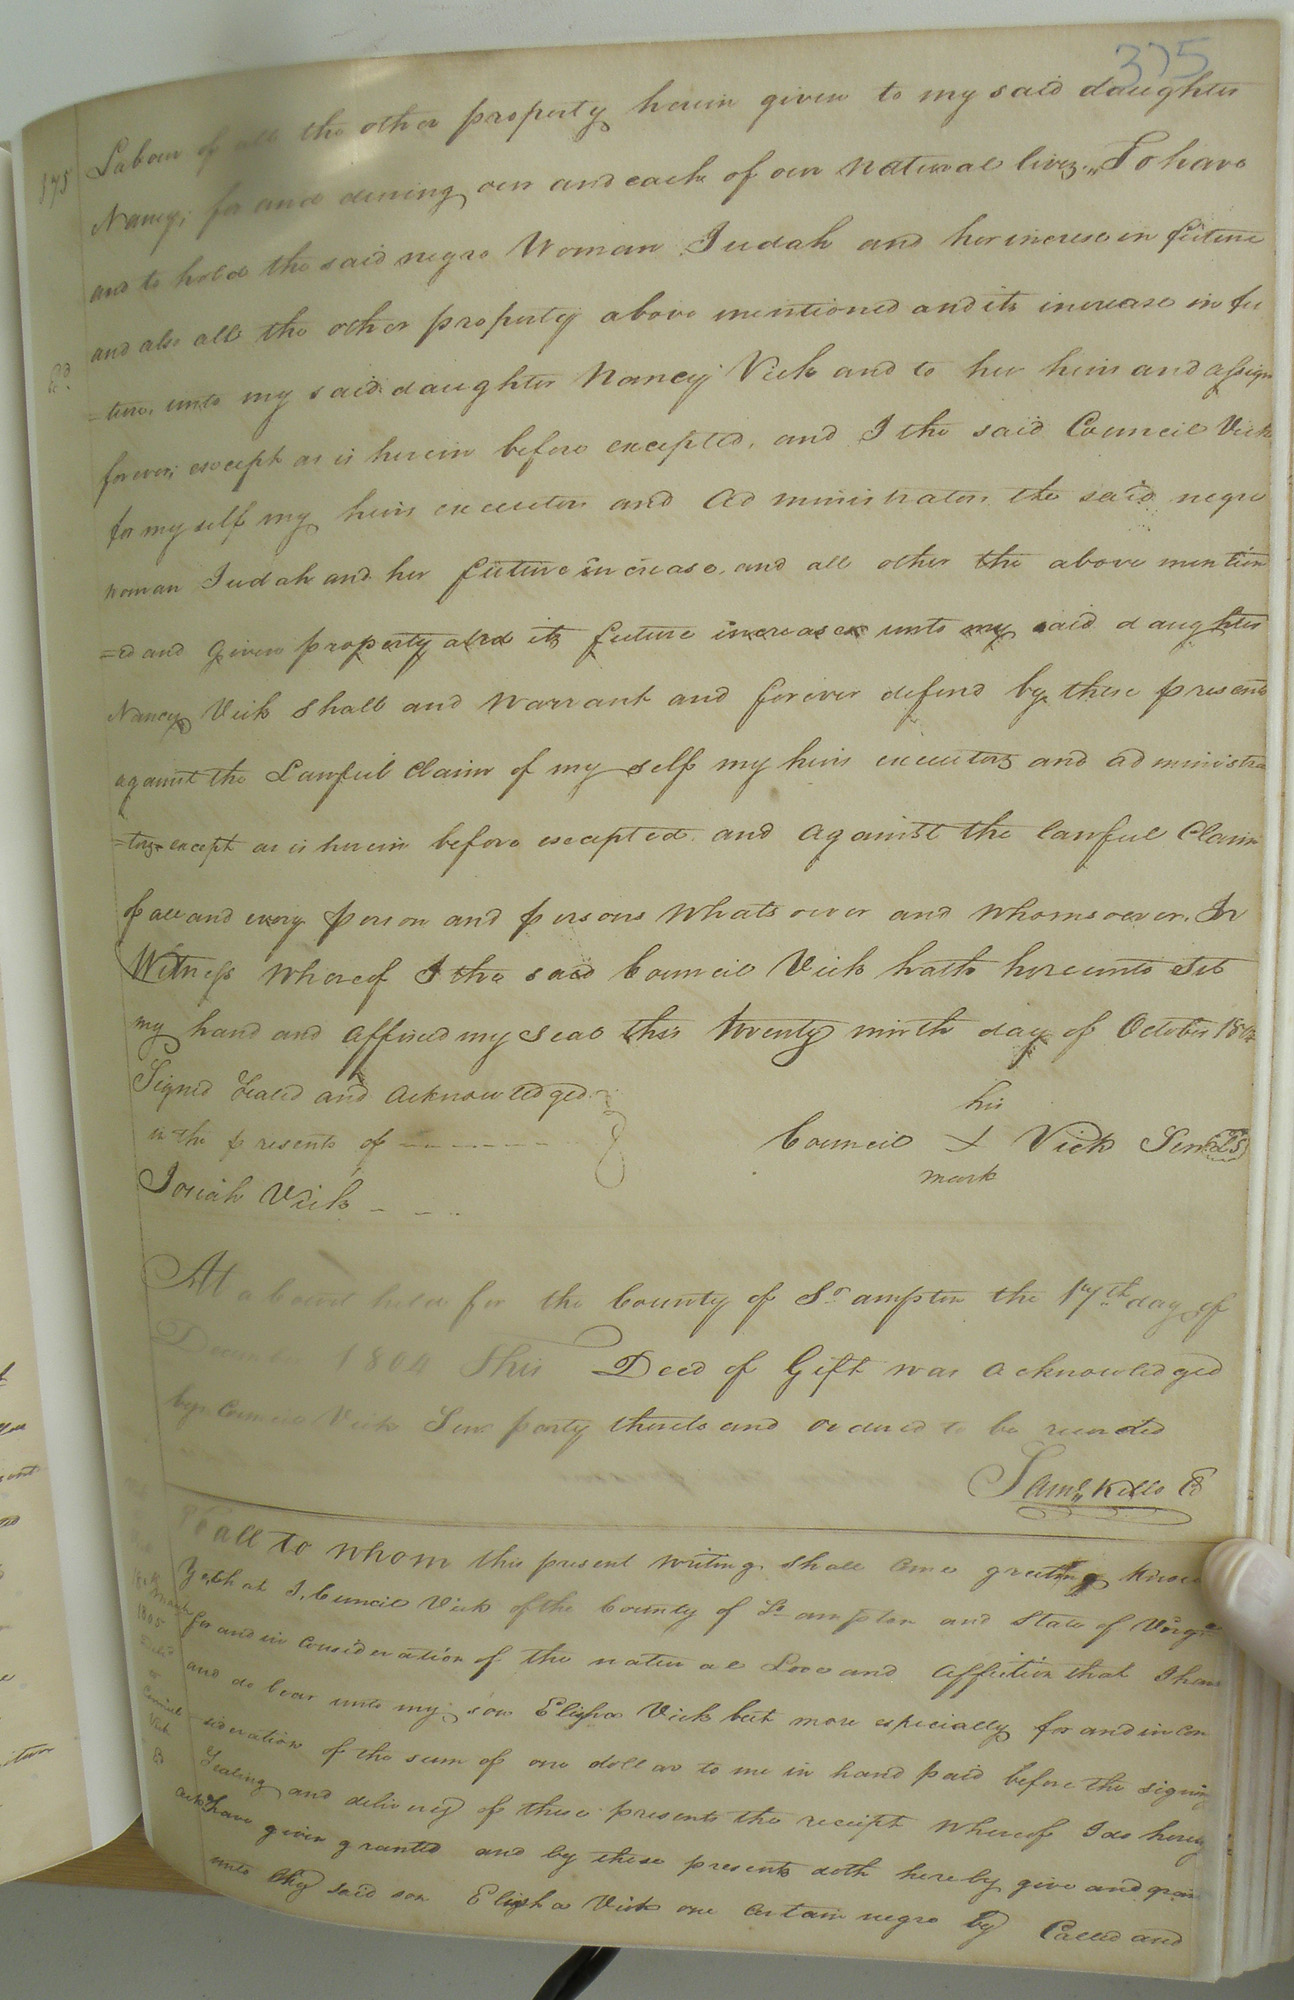 375
175
Labour of all the other property herein given to my said daughter
Nancy; for and during our and each of our natural lives. To have
and to hold the said negro Woman Judah and her increse in future
and also all the other property above mentioned and its increase in fu
=ture, unto my said daughter Nancy Vick and to her heirs and assigns
forever; except as is herein before excepted, and I the said Council Vick
for my self my heirs executors and Administrators the said negro
woman Judah and her future increase, and all other the above mention
=ed and given property and its future increase unto my said daughter
Nancy Vick Shall and Warrant and forever defend by these presents
against the Lawful Claim of my self my heirs executors and administra
=tors except as is herein before excepted. and against the lawful Claim
of all and every person and persons Whatsoever and Whomsoever. In
Witness Whereof I the said Council Vick hath hereunto Set
my hand and affixed my Seal this twenty ninth day of October 1804
Signed Sealed and acknowledged
in the presents of
Josiah Vick
his
Council + Vick Senr LS
mark
At a Court held for the County of So.ampton the 17th day of
December 1804 This Deed of Gift was acknowledged
by Council Vick Senr party thereto and ordered to be recorded
Saml. Kello C
To all to Whom this present writing shall come greeting Know
Ye that I, Council Vick of the County of So.ampton and State of Virga
for and in Consideration of the natural Love and affection that I have
and do bear unto my son Elisha Vick but more especially for and in con
sideration of the sum of one dollar to me in hand paid before the signing
Sealing and delivery of these presents the receipt Whereof I do hereby
ack have given granted and by these presents doth hereby give and grant
unto my said son Elisha Vick one certain negro by Called and
March
1805
Council
Vick